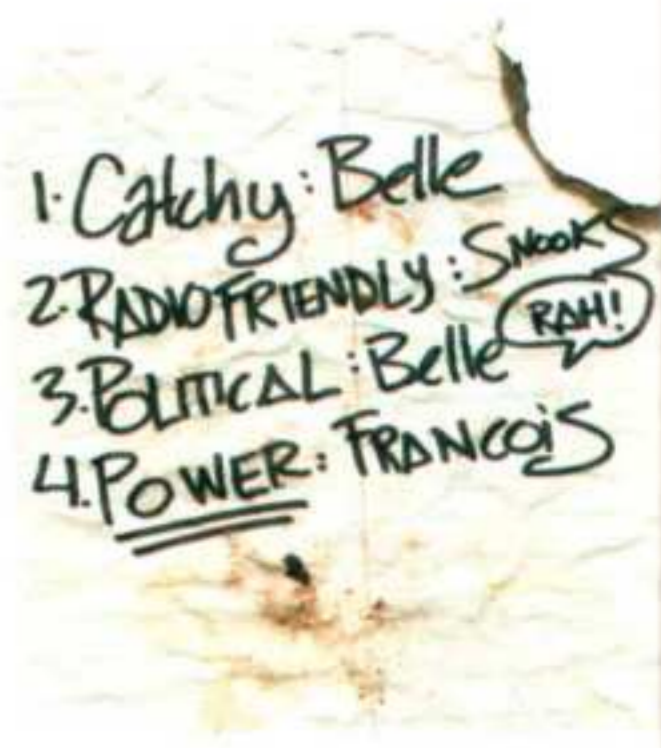 1. Catchy: Belle
2. RADIO FRIENDLY: SNOOKS
RAH!
3. POLITICAL: Belle
4. POWER: FRANCOIS